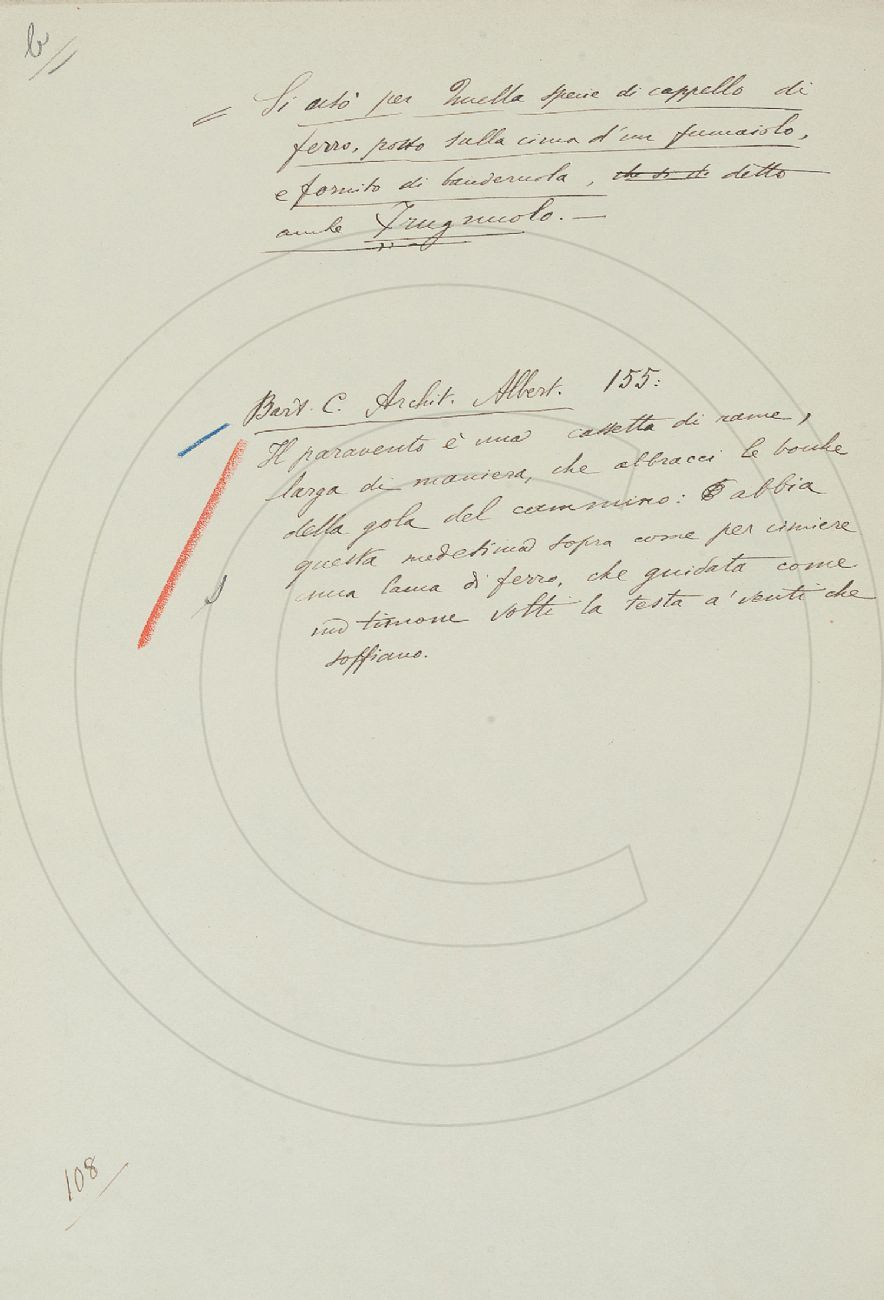 b
= Si usò per Quella specie di cappello di
ferro, posto sulla cima d'un fumaiolo,
e fornito di banderuola, che si di detto
anche Frugnuolo. —
Bart. C. Archit. Albert. 155:
Il paravento è una cassetta di rame,
larga di maniera, che abbracci le bouche
della gola del cammino: E abbia
questa medesima sopra come per cimiere
una lama di ferro, che guidata come
un timone volti la testa a' venti che
soffiano.
108